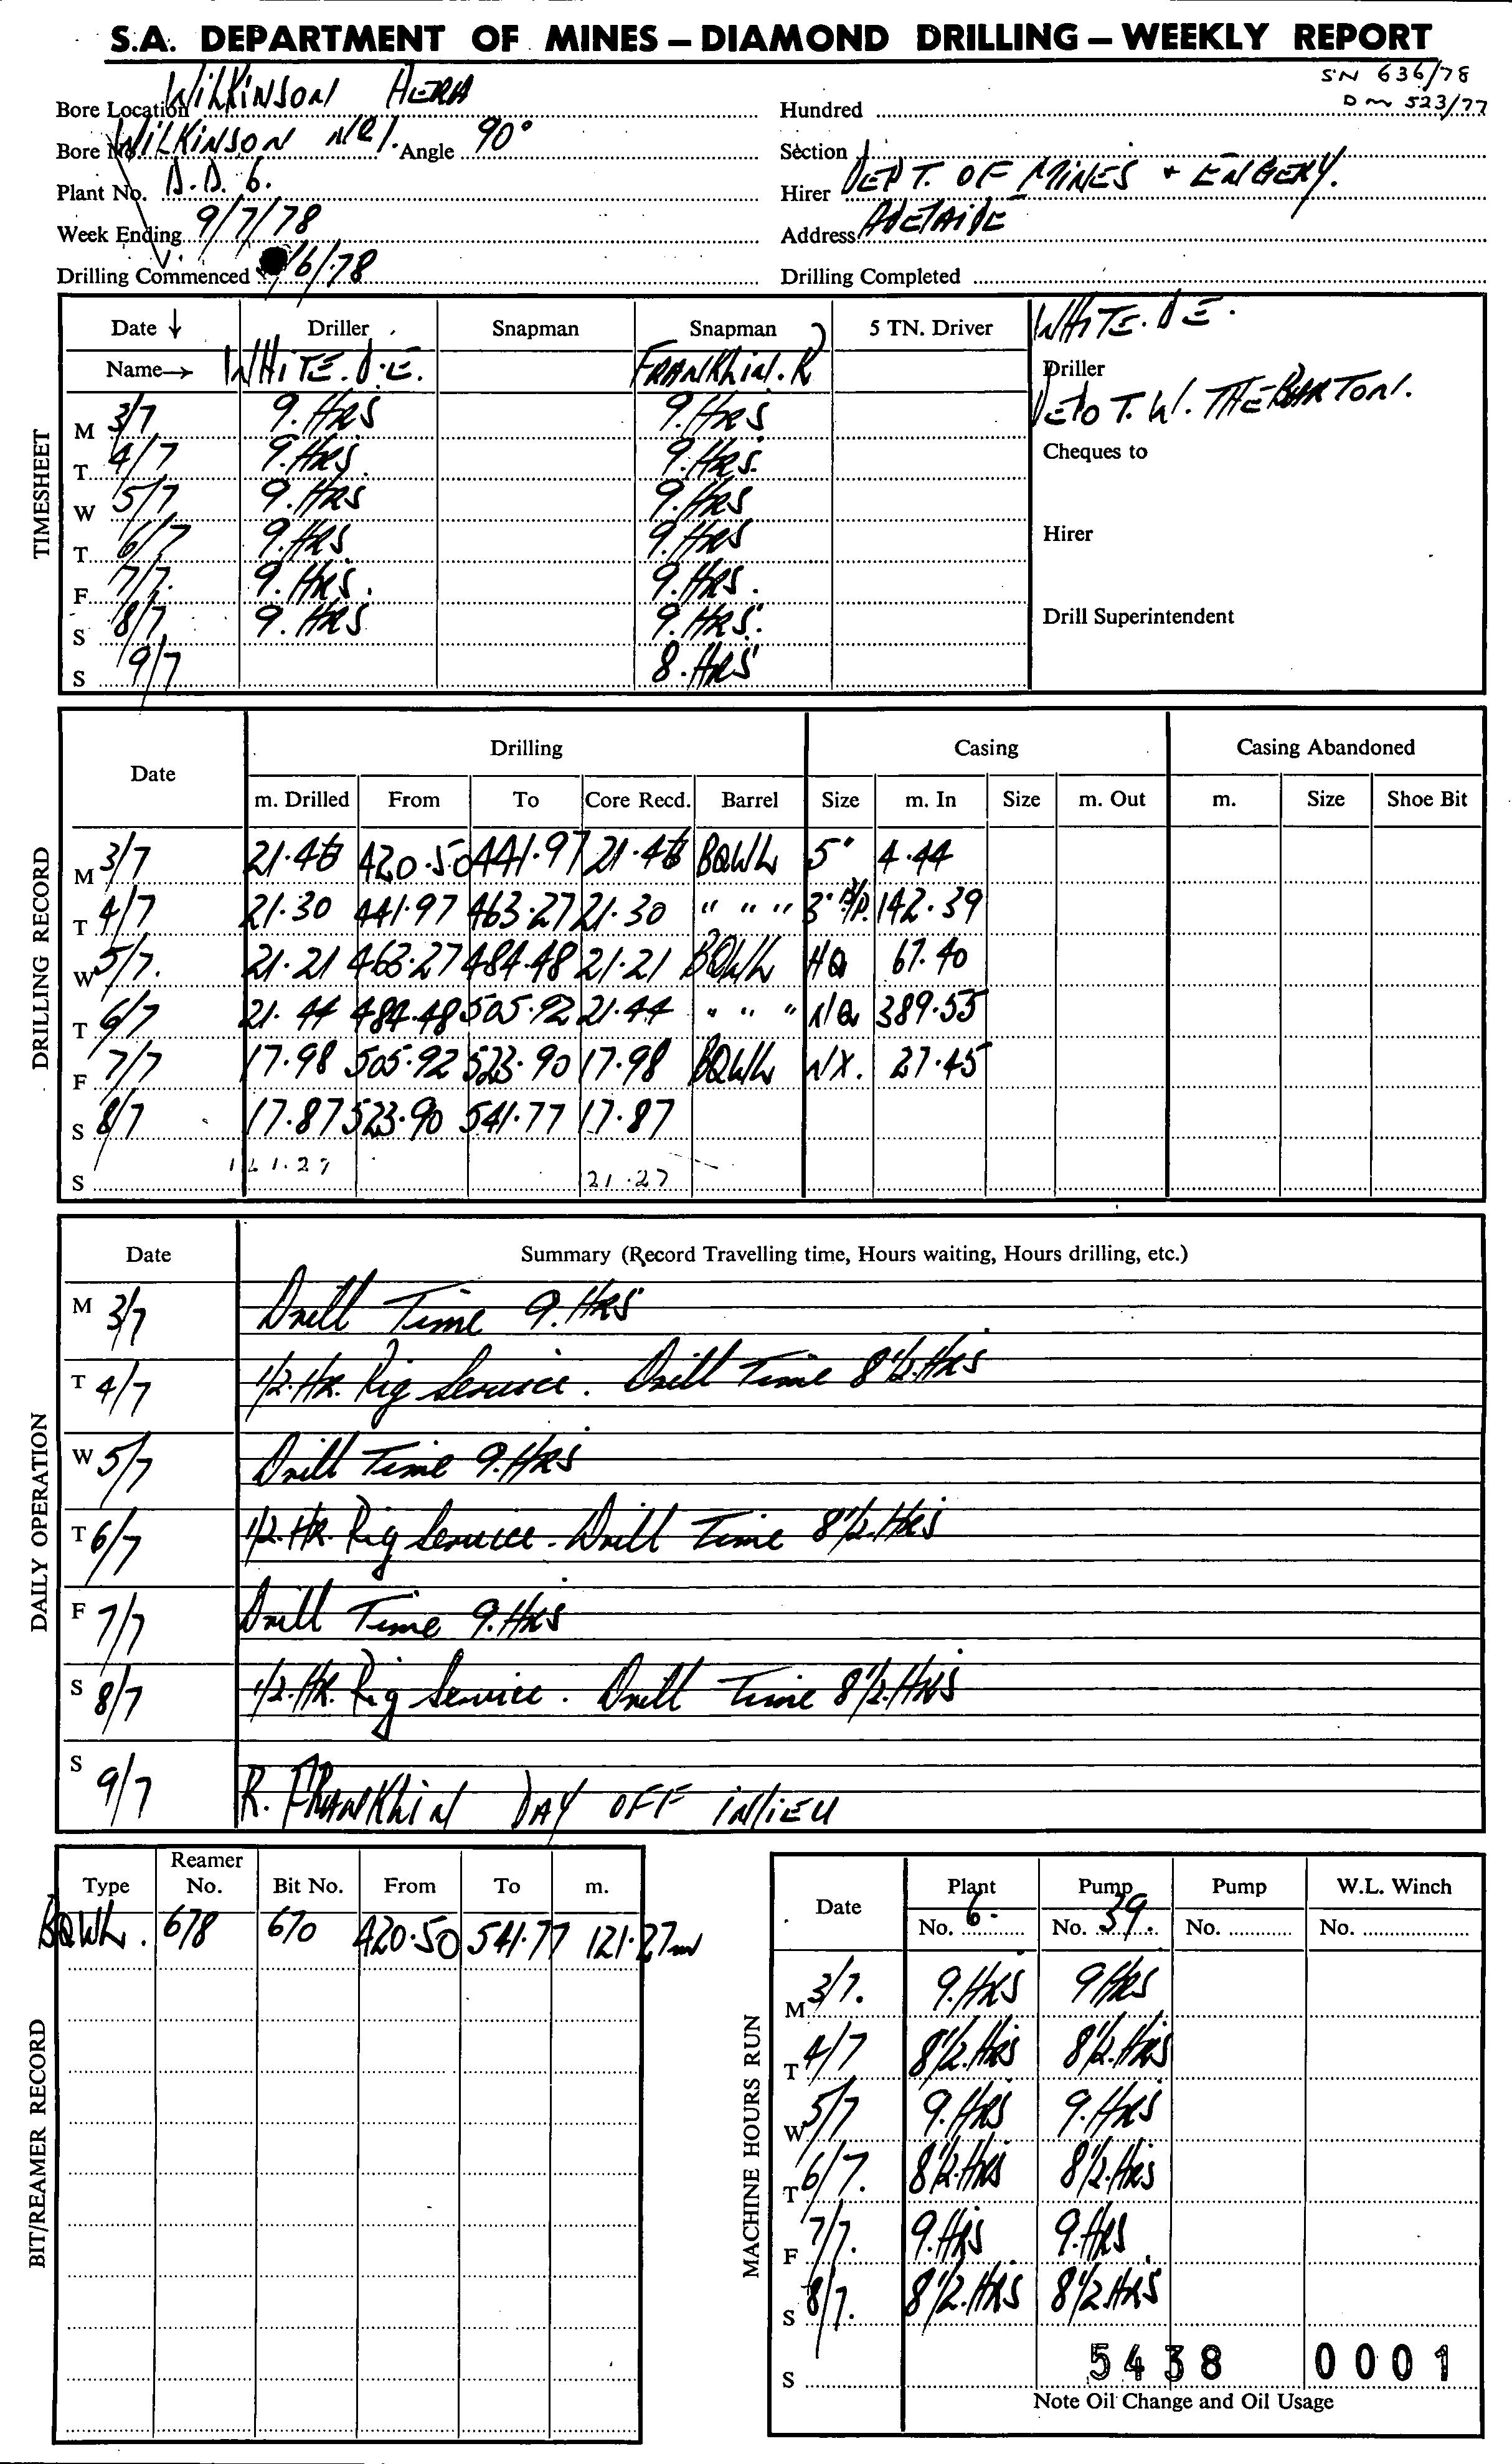 S.A. DEPARTMENT OF MINES – DIAMOND DRILLING – WEEKLY REPORT
SN 636/78
DM 523/77
Bore Location WILKINSON AERA
Hundred
Bore No. WILKINSON NR1. Angle 90°
Section
Plant No. D.D. 6.
Hirer DEPT. OF MINES + ENGERY.
Week Ending 9/7/78
Address ADELAIDE
Drilling Commenced /6/78
Drilling Completed
TIMESHEET
Date ↓ Driller Snapman Snapman 5 TN. Driver
Name→ WHITE. D.E. FRANKLIN. R
M 3/7 9. HRS 9. HRS
T 4/7 9. HRS. 9. HRS.
W 5/7 9. HRS 9. HRS
T 6/7 9. HRS 9. HRS
F 7/7. 9. HRS. 9. HRS.
S 8/7 9. HRS 9. HRS.
S 9/7 8. HRS
WHITE. D E.
Driller
T. W.
Cheques to
Hirer
Drill Superintendent
DRILLING RECORD
Date Drilling Casing Casing Abandoned
m. Drilled From To Core Recd. Barrel Size m. In Size m. Out m. Size Shoe Bit
M 3/7 420.50 441.97 BQWL 5" 4.44
T 4/7 21.30 441.97 463.27 21.30 " " " 3" 142.39
W 5/7. 21.21 463.27 484.48 21.21 BQWL HQ 67.40
T 6/7 21.44 484.48 505.92 21.44 " " " NQ 389.55
F 7/7 17.98 505.92 523.90 17.98 BQWL NX. 27.45
S 8/7 17.87 523.90 541.77 17.87
S 121.27 21.27
DAILY OPERATION
Date Summary (Record Travelling time, Hours waiting, Hours drilling, etc.)
M 3/7 Drill Time 9. HRS
T 4/7 1/2. Hr. Rig Service. Drill Time 8 1/2. HRS
W 5/7 Drill Time 9. HRS
T 6/7 1/2. Hr. Rig Service. Drill Time 8 1/2. HRS
F 7/7 Drill Time 9. HRS
S 8/7 1/2. Hr. Rig Service. Drill Time 8 1/2. HRS
S 9/7 R. FRANKLIN DAY OFF INLIEU
BIT/REAMER RECORD
Type Reamer No. Bit No. From To m.
BQWL. 678 670 420.50 541.77 121.27m
MACHINE HOURS RUN
Date Plant Pump Pump W.L. Winch
No. 6. No. 39. No. No.
M 3/7. 9. HRS 9 HRS
T 4/7 8 1/2. HRS 8 1/2. HRS
W 5/7 9. HRS 9. HRS
T 6/7. 8 1/2. HRS 8 1/2. HRS
F 7/7. 9. HRS 9. HRS
S 8/7. 8 1/2. HRS 8 1/2 HRS
S 5438 0001
Note Oil Change and Oil Usage